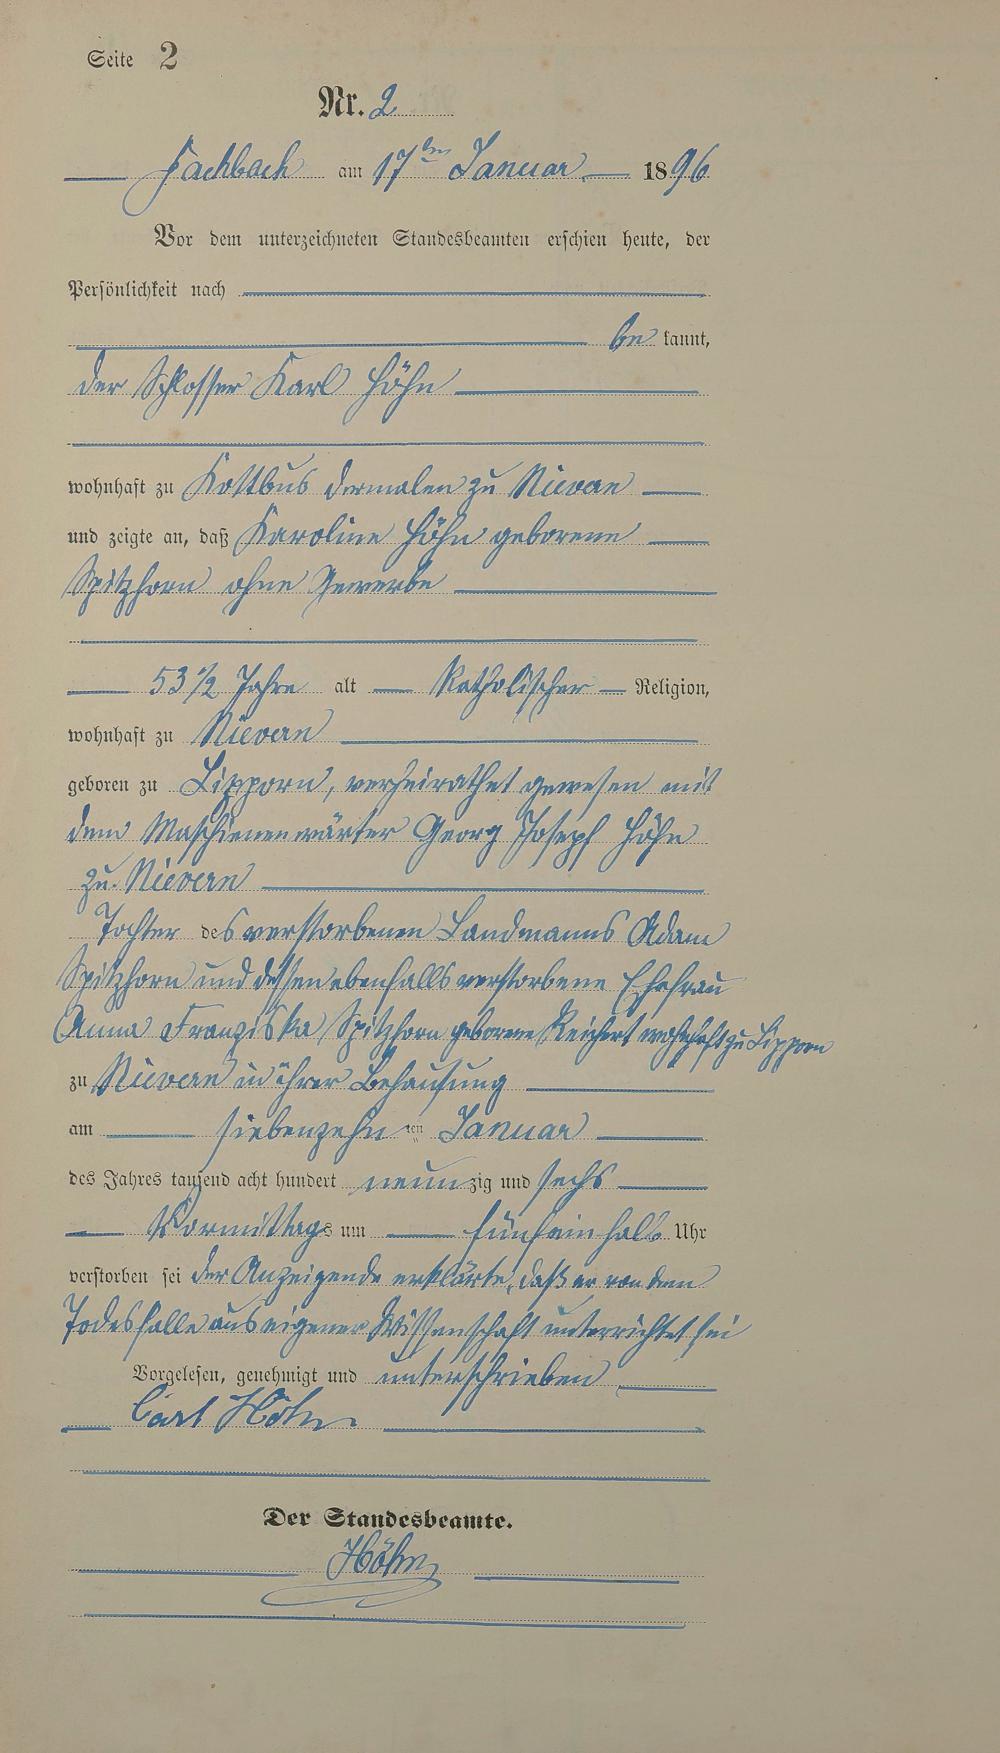 Seite 2
Nr. 2
Fachbach am 17ten Januar 1896
Vor dem unterzeichneten Standesbeamten erschien heute, der
Persönlichkeit nach
be kannt,
der Schlosser Karl Höhn
wohnhaft zu Kottbus dermalen zu Nievern
und zeigte an, daß Karoline Höhn geborene
Spitzhorn ohne Gewerbe
53 1/2 Jahre alt Katholischer Religion,
wohnhaft zu Nievern
geboren zu Lipporn, verheirathet gewesen mit
dem Maschienenwärter Georg Joseph Höhn
zu Nievern
Tochter des verstorbenen Landmanns Adam
Spitzhorn und dessen ebenfalls verstorbene Ehefrau
Anna Franziska Spitzhorn geborene Reichert wohnhaft zu Lipporn
zu Nievern in ihrer Behausung
am siebenzehn ten Januar
des Jahres tausend acht hundert neun zig und sechs
Vormittags um fünfeinhalb Uhr
verstorben sei der Anzeigende erklärte, daß er von dem
Todesfalle aus eigener Wissenschaft unterrichtet sei
Vorgelesen, genehmigt und unterschrieben
Carl Höhn
Der Standesbeamte.
Höhn